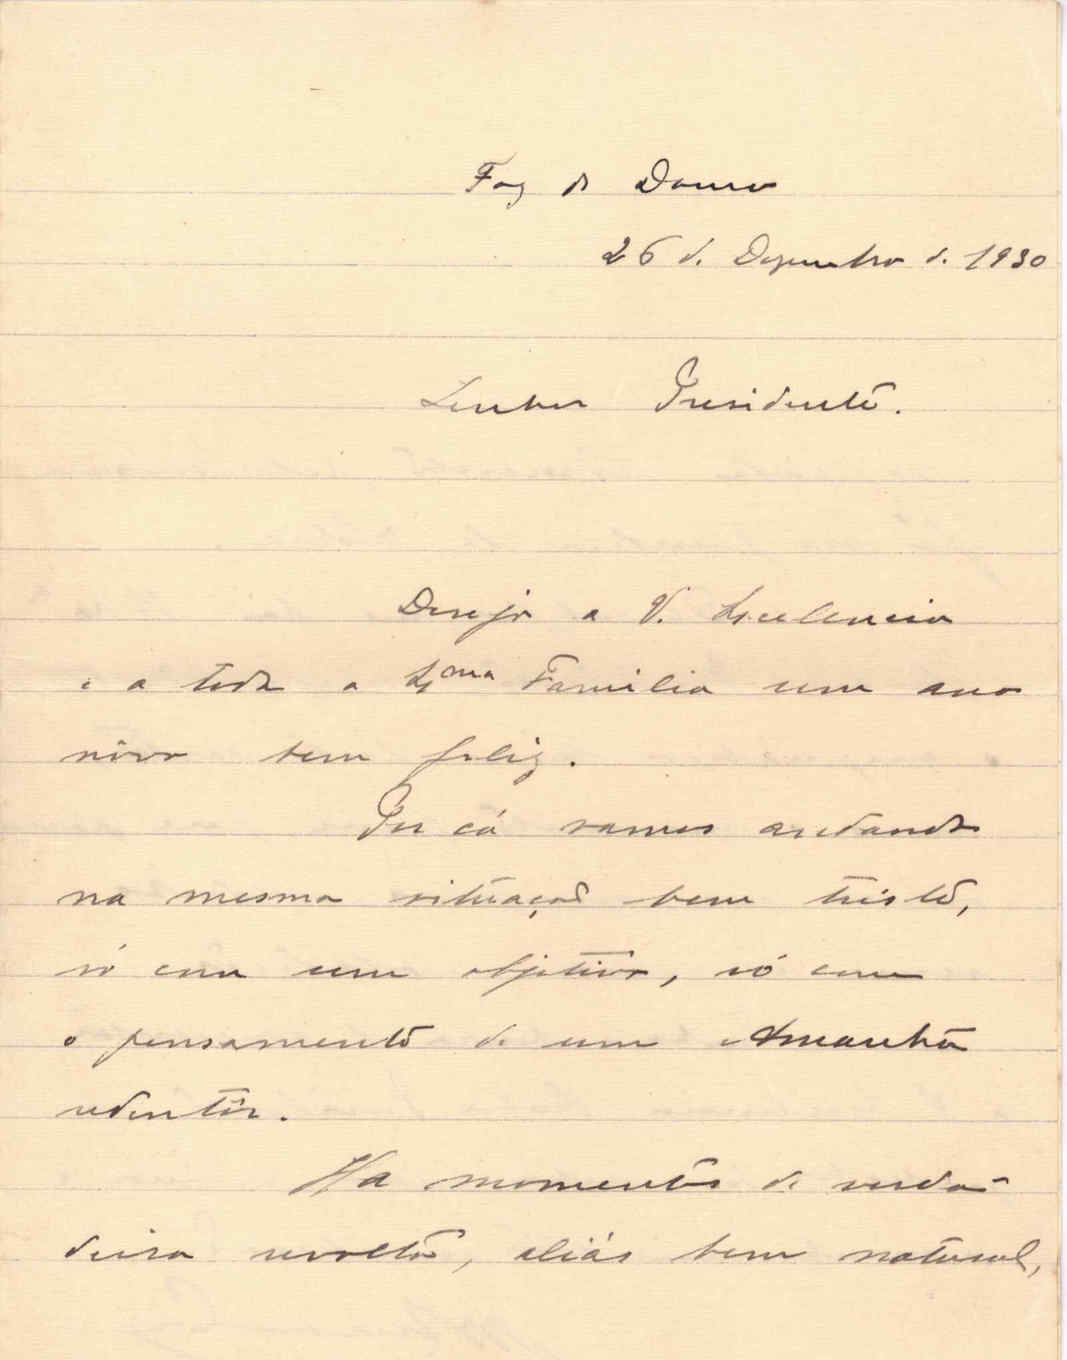 Foz do Douro
26 de Dezembro de 1930
Senhor Presidente.
Desejo a V. Excelencia
e a toda a Exma Familia um ano
nôvo bem feliz.
Por cá vamos andando
na mesma situação bem triste,
só com um objetivo, só com
o pensamento de um Amanhã
redentôr.
Ha momentos de verda-
deira revolta, aliás bem natural,